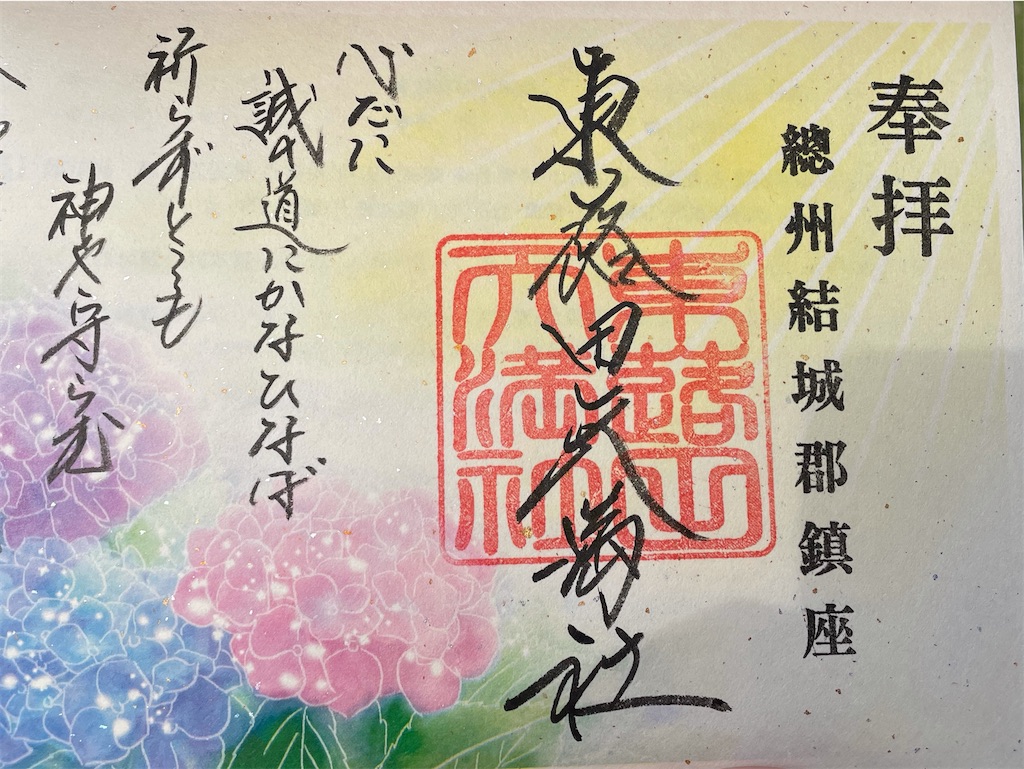 奉拝
總州結城郡鎮座
東蕗田天満社
東蕗田
天満社
心だに
誠の道にかなひなば
祈らずとても
神や守らむ